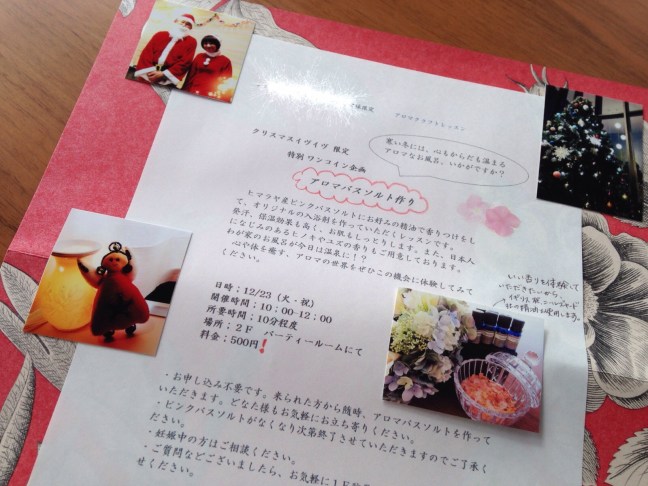 様限定 アロマクラフトレッスン
クリスマスイヴイヴ 限定
特別 ワンコイン企画
寒い冬には、心もからだも温まる
アロマなお風呂、いかがですか?
アロマバスソルト作り
ヒマラヤ産ピンクバスソルトにお好みの精油で香りつけをし
て、オリジナルの入浴剤を作っていただくレッスンです。
発汗、保温効果も高く、お肌もしっとりします。また、日本人
になじみのあるヒノキやユズの香りもご用意しております。
わが家のお風呂が今日は温泉に!?
心や体を癒す、アロマの世界をぜひこの機会に体験してみて
ください。
いい香りを体験して
いただきたいから、
イギリス
の精油を使用します。
日時:12/23(火・祝)
開催時間:10:00-12:00
所要時間:10分程度
場所:2F パーティールームにて
料金:500円!
・お申し込み不要です。来られた方から随時、アロマバスソルトを作って
いただきます。どなた様もお気軽にお立ち寄りください。
・ピンクバスソルトがなくなり次第終了させていただきますのでご了承く
ださい。
・妊娠中の方はご相談ください。
・ご質問などございましたら、お気軽に1F
せください。